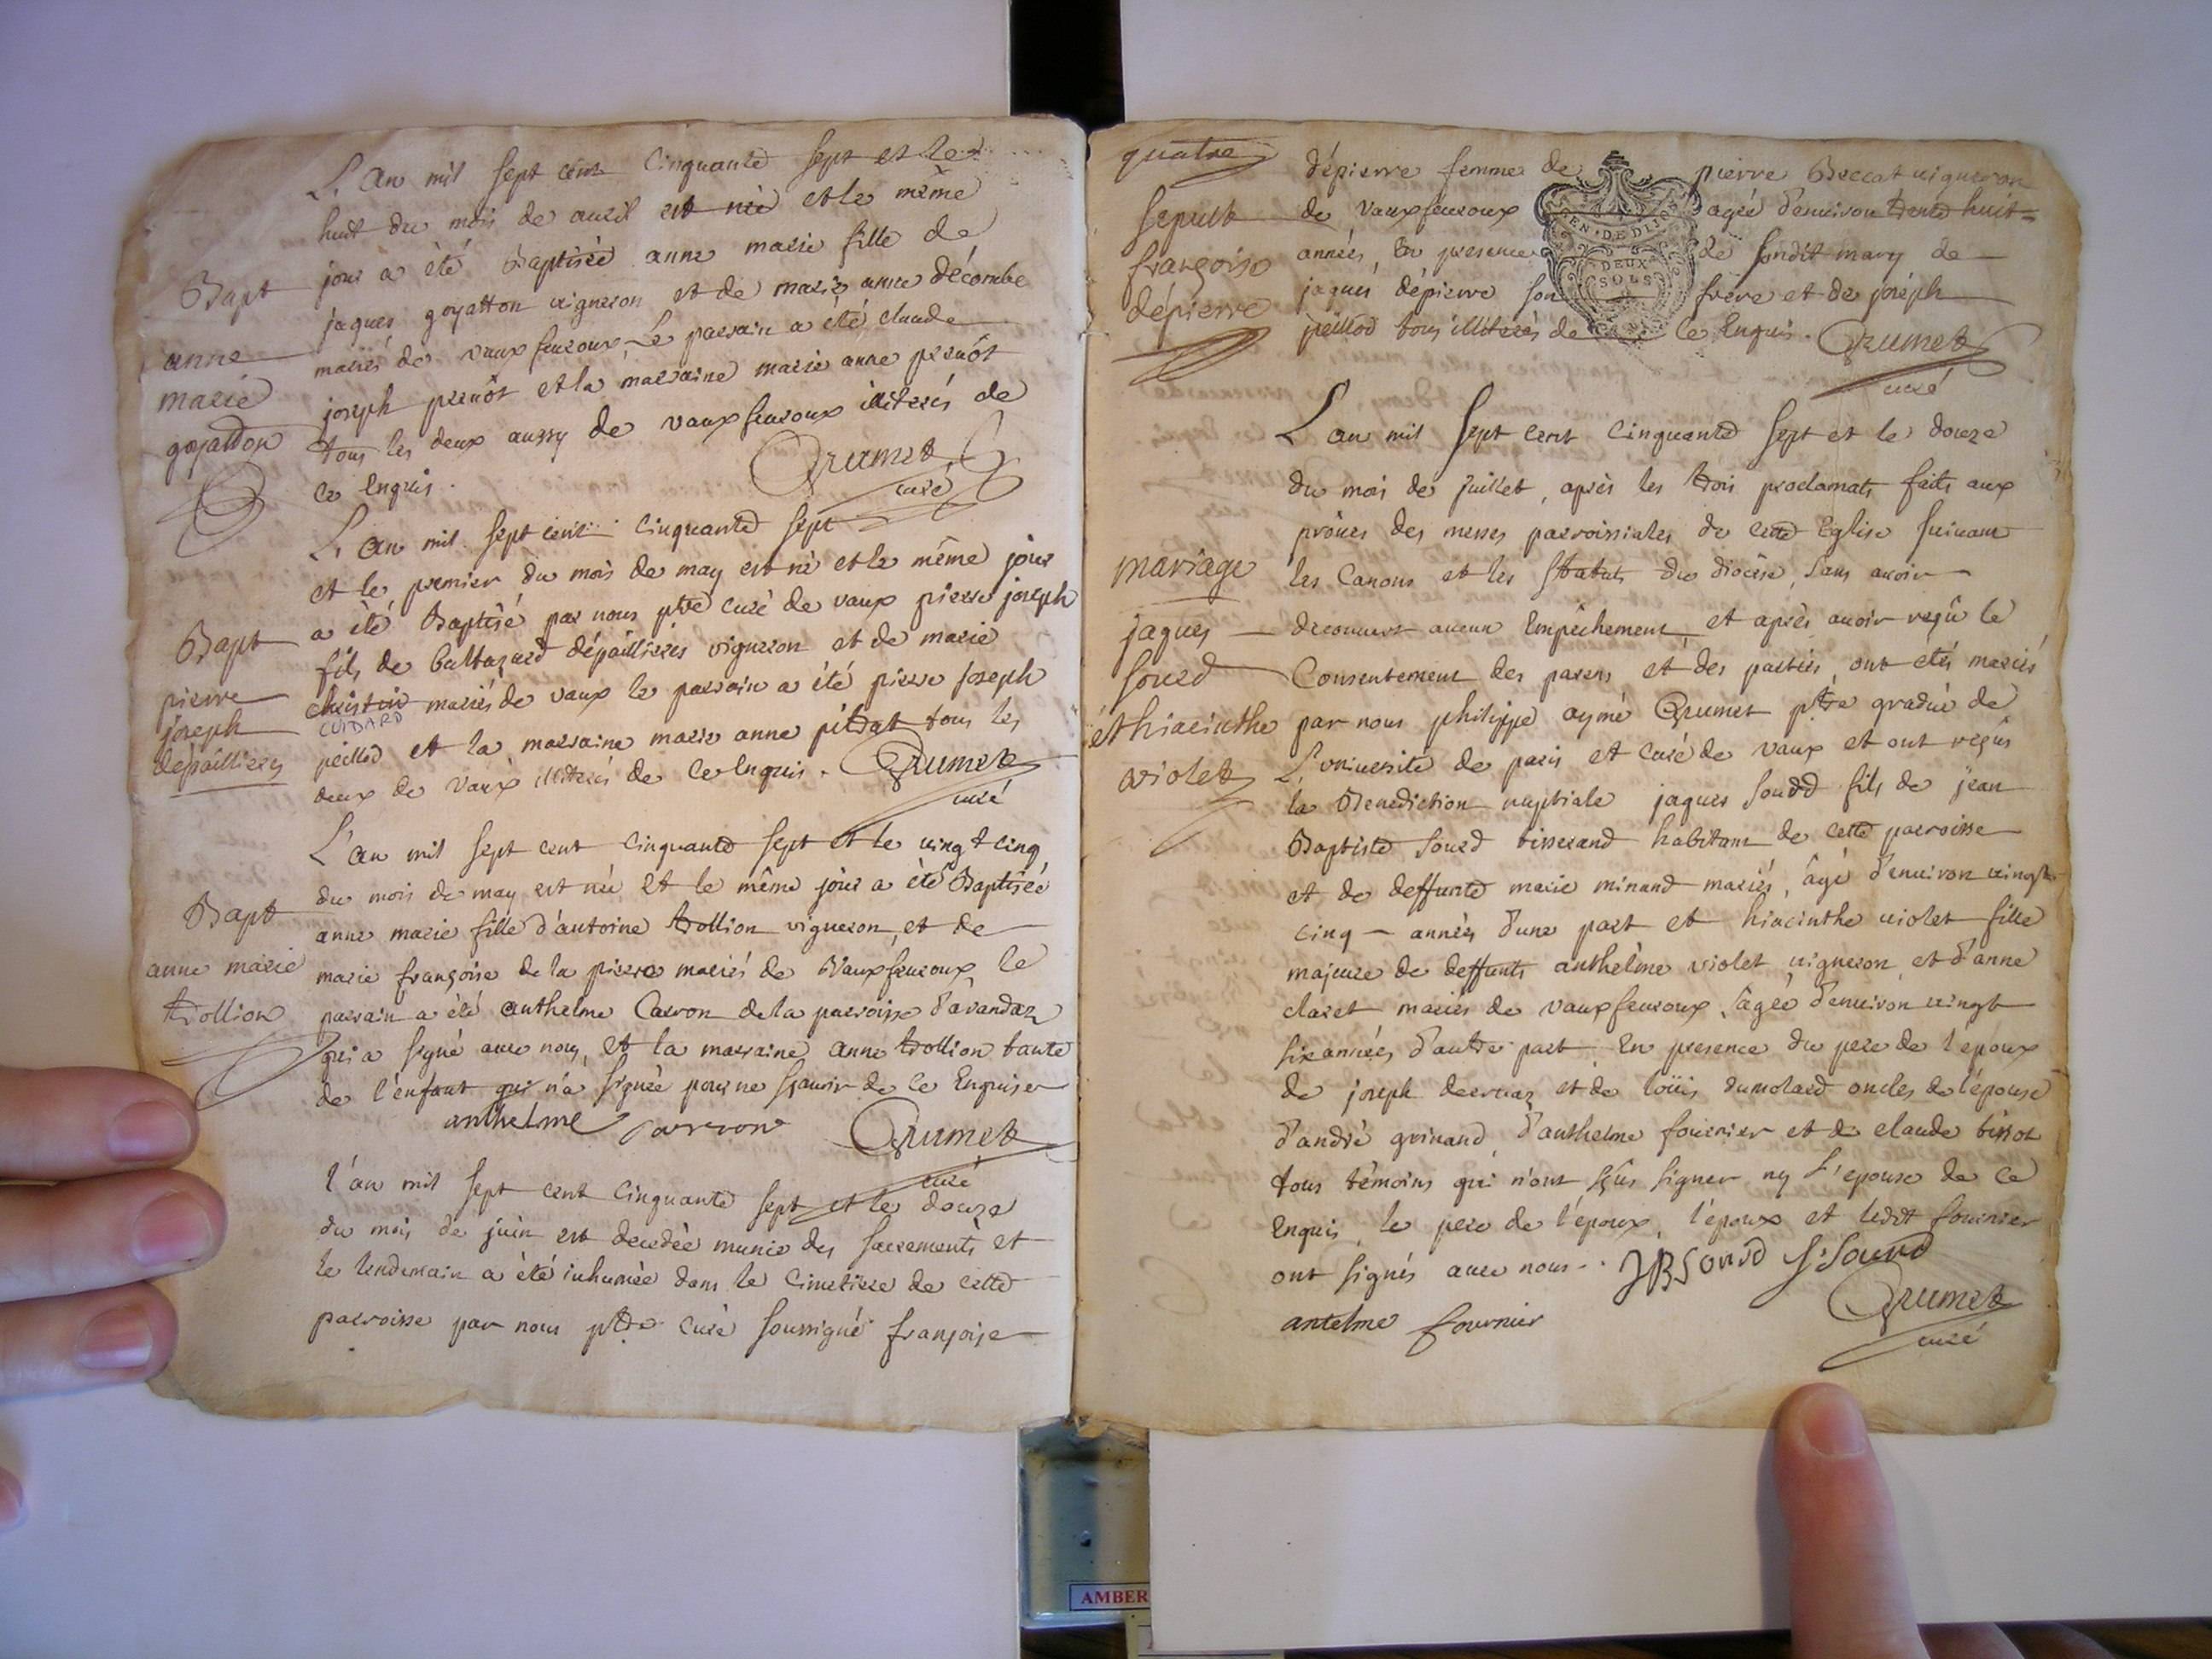 L'an mil sept cent cinquante sept et le
huit du mois de avril est née et le même
Bapt
jour a été Baptisée anne marie fille de
jaques goyatton vigneron et de marie anne décombe
anne
mariés de vaux fevroux, Le parrain a été claude
marie
joseph pernôt et la marraine marie anne pernôt
goyatton
tous les deux aussy de vaux fevroux illiterés de
ce Enquis.
Grumet
curé
L'an mil sept cent cinquante sept
et le premier du mois de may est né et le même jour
a été Baptisé par nous ptre curé de vaux pierre joseph
Bapt
fils de baltazard dépaillieres vigneron et de marie
pierre
christin mariés de vaux le parrain a été pierre joseph
joseph
CUIDARD
peillod et la marraine marie anne pittat tous les
dépaillieres
deux de vaux illiterés de ce Enquis. Grumet
curé
L'an mil sept cent cinquante sept et le vingt cinq
du mois de may est née et le même jour a été Baptisée
Bapt
anne marie fille d'antoine trollion vigneron, et de
anne marie
marie françoise de la pierre mariés de vaux fevroux, le
trollion
parrain a été anthelme Carron de la parroisse d'arandaz
qui a signé avec nous, et la marraine anne trollion tante
de l'enfant qui n'a signée pour ne sçavoir de ce Enquise
anthelme carron
Grumet
curé
l'an mil sept cent cinquante sept et le douze
du mois de juin est decedée munie des sacrements et
le lendemain a été inhumée dans le cimetiere de cette
parroisse par nous ptre curé soussigné françoise
quatre
dépierre femme de pierre Beccat vigneron
sepult
de vaux fevroux agée d'environ trente huit
françoise
années, En presence de sondit mary de
dépierre
jaques dépierre son frere et de joseph
GEN. DE DIJON
DEUX
SOLS
peillod tous illiterés de ce Enquis. Grumet
curé
L'an mil sept cent cinquante sept et le douze
du mois de juillet, après les trois proclamats faits aux
prônes des messes parroissiales de cette Eglise suivant
mariage
les Canons et les statuts du diocèse, sans avoir
jaques
decouvert aucun Empêchement, et après avoir reçû le
sourd
Consentement des parens et des parties, ont etés mariés
et hiacinthe
par nous philippe aymé Grumet ptre gradué de
violet
L'université de paris et curé de vaux et ont reçus
la Benediction nuptiale jaques sourd fils de jean
Baptiste sourd tisserand habitant de cette parroisse
et de deffunte marie minand mariés, âgé d'environ vingt
cinq années d'une part et hiacinthe violet fille
majeure de deffunts anthelme violet vigneron et d'anne
claret mariés de vaux fevroux, âgée d'environ vingt
six années d'autre part En presence du pere de l'epoux
de joseph dervaz et de loüis dumolard oncles de l'épouse
d'andré grinand, d'anthelme fournier et de claude bissot
tous témoins qui n'ont sçus signer ny l'epouse de ce
Enquis, le pere de l'époux, l'époux et ledit fournier
ont signés avec nous. JB sourd J sourd
Grumet
antelme fournier
curé
AMBER